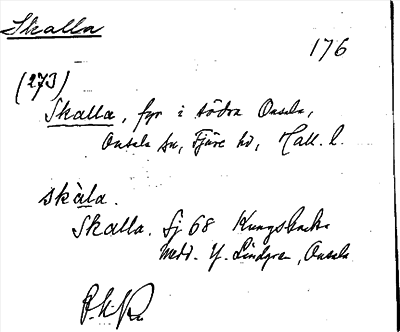 Skalla
176
(273)
Skalla, fyr i södra Onsala,
Onsala sn, Fjäre hd, Hall. l.
skàla.
Skalla. Sj 68 Kungsbacka
Medd. Y. Lindgren, Onsala